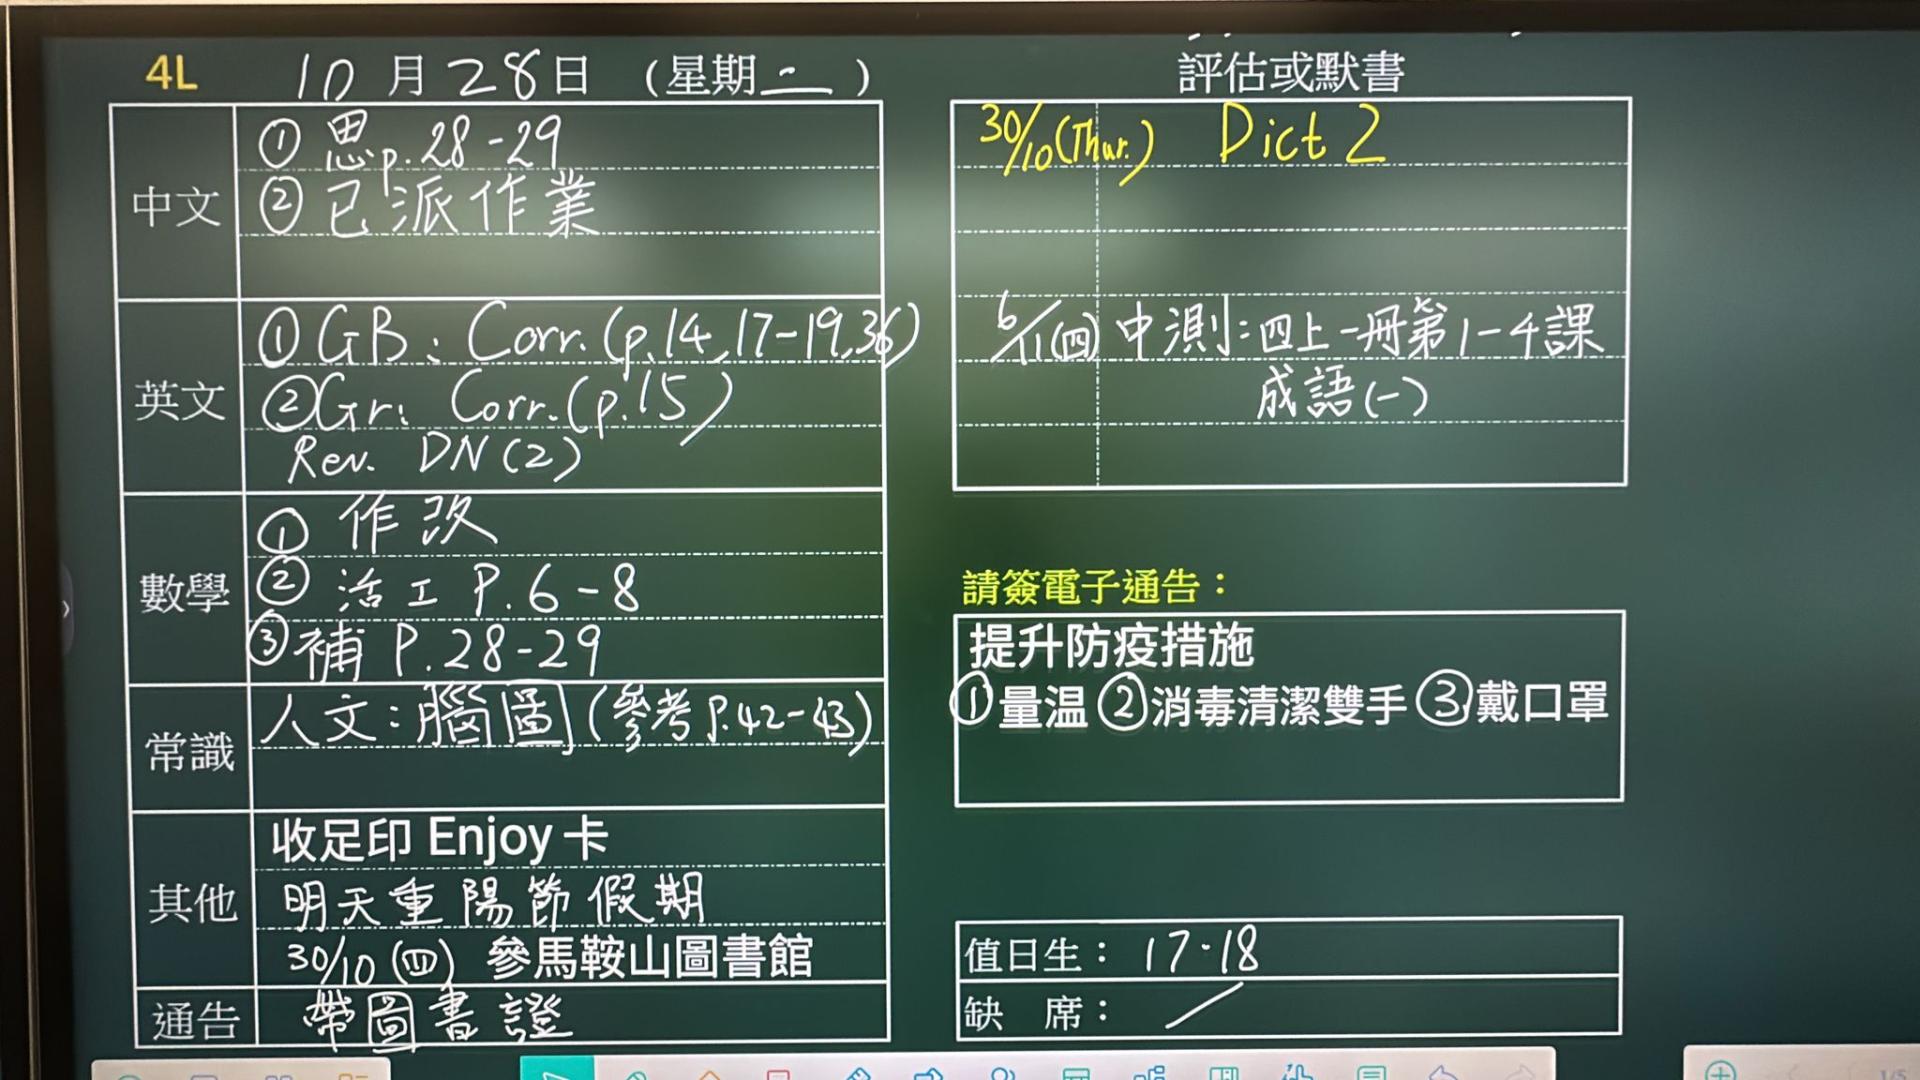 4L 10月28日 (星期二)
中文
① 思p.28-29
② 已派作業
英文
① GB: Corr. (p.14,17-19,36)
② Gr: Corr. (p.15)
Rev. DN(2)
數學
① 作改
② 活工 P.6-8
③ 補 P.28-29
常識
人文:腦圖(參考P.42-43)
其他
收足印 Enjoy 卡
明天重陽節假期
30/10 (四) 參馬鞍山圖書館
通告
帶圖書證
評估或默書
30/10 (Thur.) Dict 2
6/11(四) 中測:四上一冊第1-4課
成語(一)
請簽電子通告：
提升防疫措施
①量温 ②消毒清潔雙手 ③戴口罩
值日生： 17.18
缺 席： /
1/5